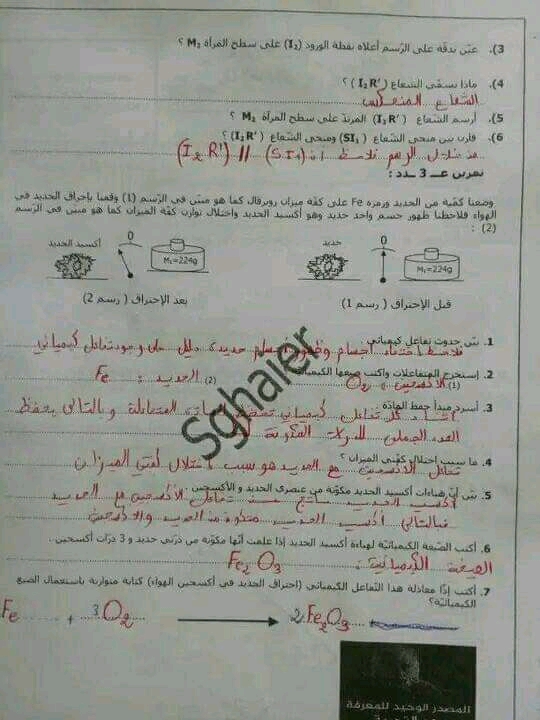 3). عيّن بدقة على الرّسم أعلاه نقطة الورود (I₂) على سطح المرآة M₂ ؟
4). ماذا يسمّى الشعاع (I₂R') ؟
الشعاع المنعكس
5). أرسم الشعاع (I₂R') المرتدّ على سطح المرآة M₂ ؟
6). قارن بين منحى الشعاع (SI₁) ومنحى الشعاع (I₂R') ؟
من خلال الرسم نلاحظ أن (SI₁) // (I₂R')
تمرين عـــ 3 ـــدد :
وضعنا كمّية من الحديد ورمزه Fe على كفة ميزان روبرفال كما هو مبيّن في الرّسم (1) وقمنا بإحراق الحديد في
الهواء فلاحظنا ظهور جسم واحد جديد وهو أكسيد الحديد واختلال توازن كفة الميزان كما هو مبين في الرّسم
(2) :
حديد 0 M₁=224g
أكسيد الحديد 0 M₁=224g
قبل الإحتراق ( رسم 1)
بعد الإحتراق ( رسم 2)
1. بيّن حدوث تفاعل كيميائي
نلاحظ اختفاء أجسام وظهور جديدة دليل على وجود تفاعل كيميائي
2. إستخرج المتفاعلات واكتب صيغها الكيميائية
(1) الأكسجين : O₂ (2) الحديد : Fe
3. أسرد مبدأ حفظ المادّة
كل تفاعل كيميائي المتفاعلة وبالتالي يحفظ
العدد الجملي للذرات المكونة
4. ما سبب اختلال كفّتي الميزان ؟
تفاعل الأكسجين مع الحديد هو سبب اختلال كفتي الميزان
5. بيّن أنّ هباءات أكسيد الحديد مكوّنة من عنصري الحديد و الأكسجين.
أكسيد الحديد ناتج عن تفاعل الأكسجين مع الحديد
فبالتالي أكسيد الحديد متكون من الحديد والأكسجين
6. أكتب الصّيغة الكيميائيّة لهباءة أكسيد الحديد إذا علمت أنّها مكوّنة من ذرّتي حديد و 3 ذرّات أكسجين .
الصيغة الكيميائية : Fe₂O₃
7. أكتب إذًا معادلة هذا التّفاعل الكيميائي (احتراق الحديد في أكسجين الهواء) كتابة متوازنة باستعمال الصّيغ
الكيميائيّة؟
Fe + 3O₂ → 2 Fe₂O₃
Sghaier
المصدر الوحيد للمعرفة